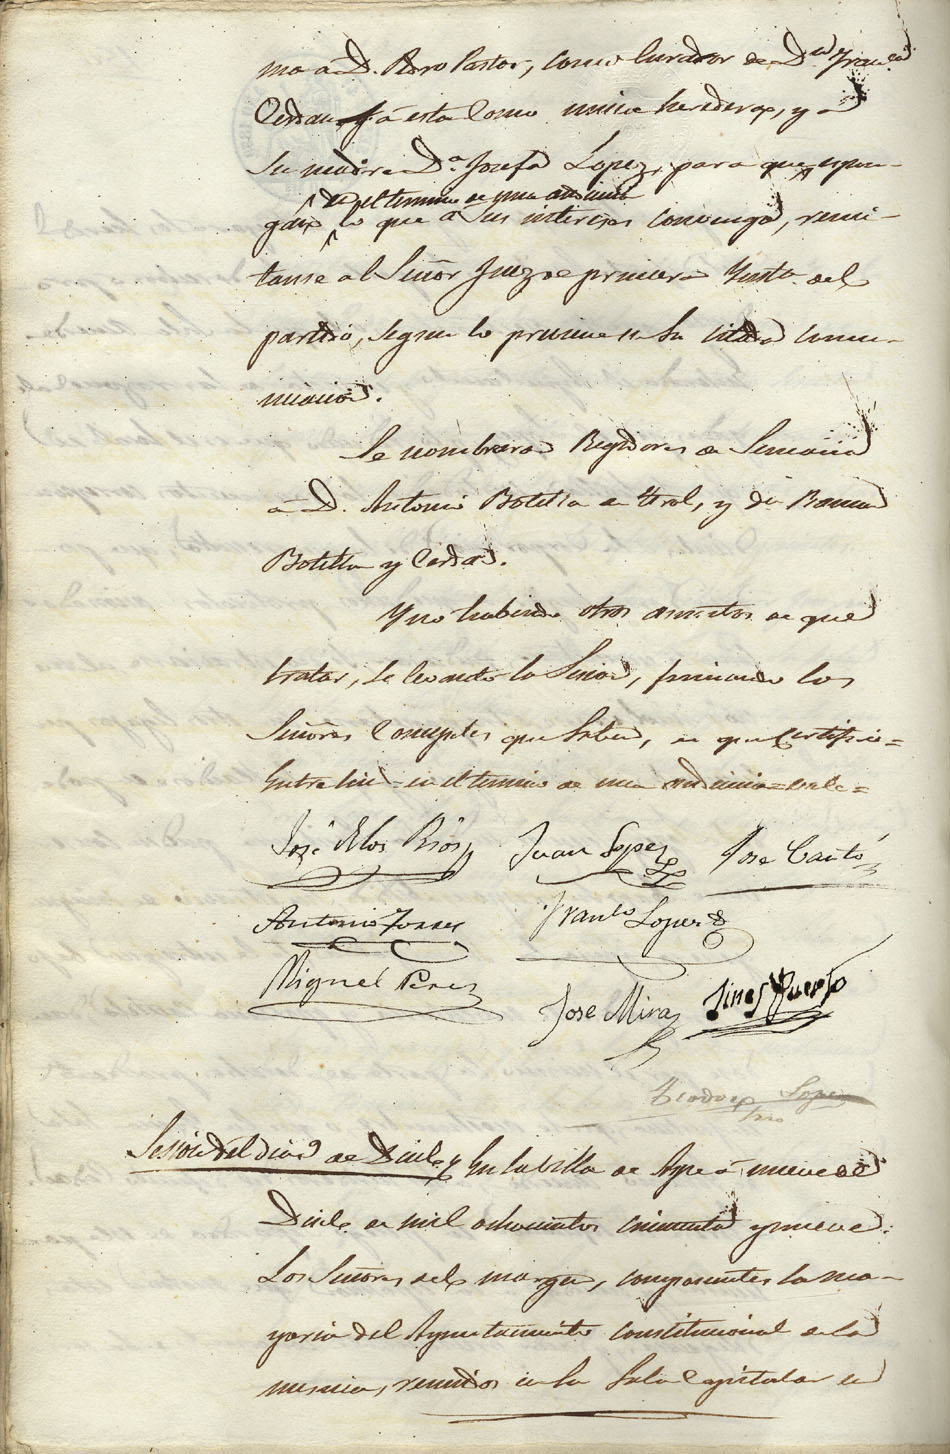 mo a D. Pedro Pastor, como Curador de D.ª Fran.ca
Cerdan, y á esta como unica heredera, y a
su madre D.ª Josefa Lopez, para que espon-
en el termino de una audiencia
gan lo que á sus intereses convenga, remi-
tanse al Señor Juez de primera Inst.ª del
partido, segun lo previene en su citada comu-
nicacion.
Se nombraron Regidores de Semana
á D. Antonio Botella de Hros, y D.n Ramon
Botella y Cerdá.
Y no habiendo otros asuntos de que
tratar, se levantó la Sesion, firmando los
Señores Concejales que saben, de que Certifico=
Entre lin.s = en el termino de una audiencia = vale =
José de los Rios
Juan Lopez
Jose Cantó
Antonio Torres
Fran.co Lopez
Miguel Perez
Jose Mira
Gines Puerto
Teodoro Lopez
Srio
Sesion del dia 9 de Dicbe
En la villa de Aspe á nueve de
Dicbe de mil ochocientos cincuenta y nueve:
Los Señores del margen, componentes la ma-
yoria del Ayuntamiento constitucional de la
misma, reunidos en la Sala Capitular en